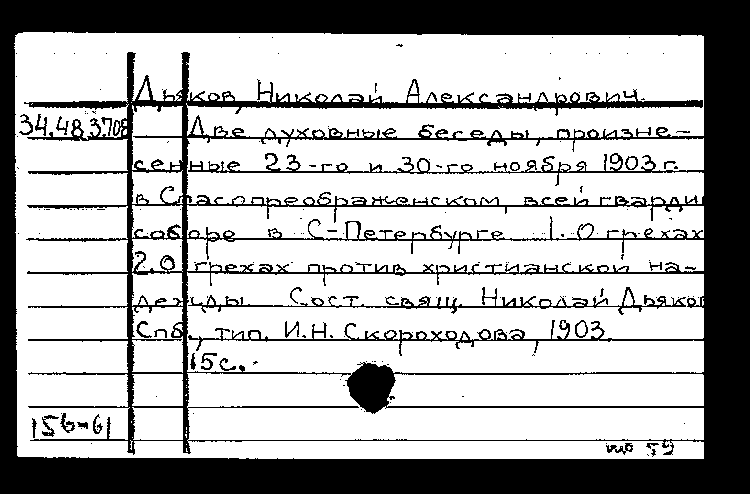 Дьяков, Николай Александрович.
34.48.3.708 Две духовные беседы, произне-
сенные 23-го и 30-го ноября 1903 г.
в Спасопреображенском, всей гвардии
соборе в С-Петербурге 1. О грехах
2. О грехах против христианской на-
дежды Сост. свящ. Николай Дьяков
Спб., тип. И.Н. Скороходова, 1903.
15 с.
156-61
59